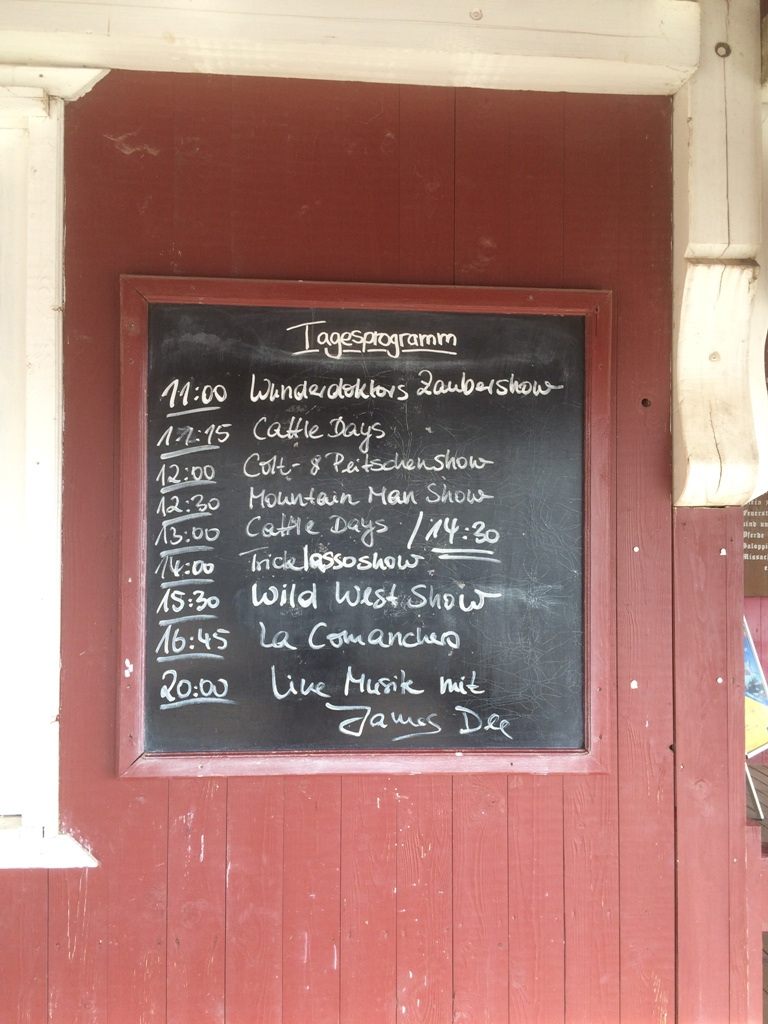 Tagesprogramm
11:00 Wunderdoktors Zaubershow
11:15 Cattle Days
12:00 Colt- & Peitschenshow
12:30 Mountain Man Show
13:00 Cattle Days / 14:30
14:00 Tricklassoshow
15:30 Wild West Show
16:45 La Comanchero
20:00 Live Musik mit
James Dee